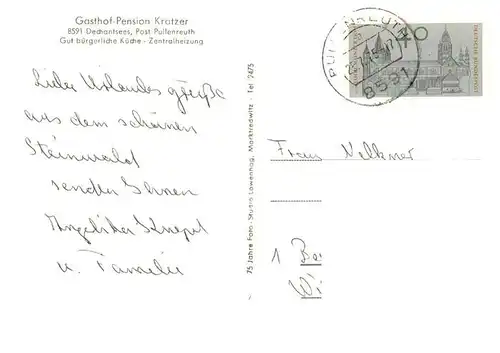 Gasthof-Pension Kratzer
8591 Dechantsees, Post Pullenreuth
Gut bürgerliche Küche - Zentralheizung
Liebe Urlaubs grüße
aus dem schönen
Steinwald
senden Ihnen
Angelika
u. Familie
75 Jahre Foto-Studio Löwenhag, Marktredwitz - Tel. 2475
PULLENREUTH
8591
40
DEUTSCHE BUNDESPOST
Frau
1 Be
Wi